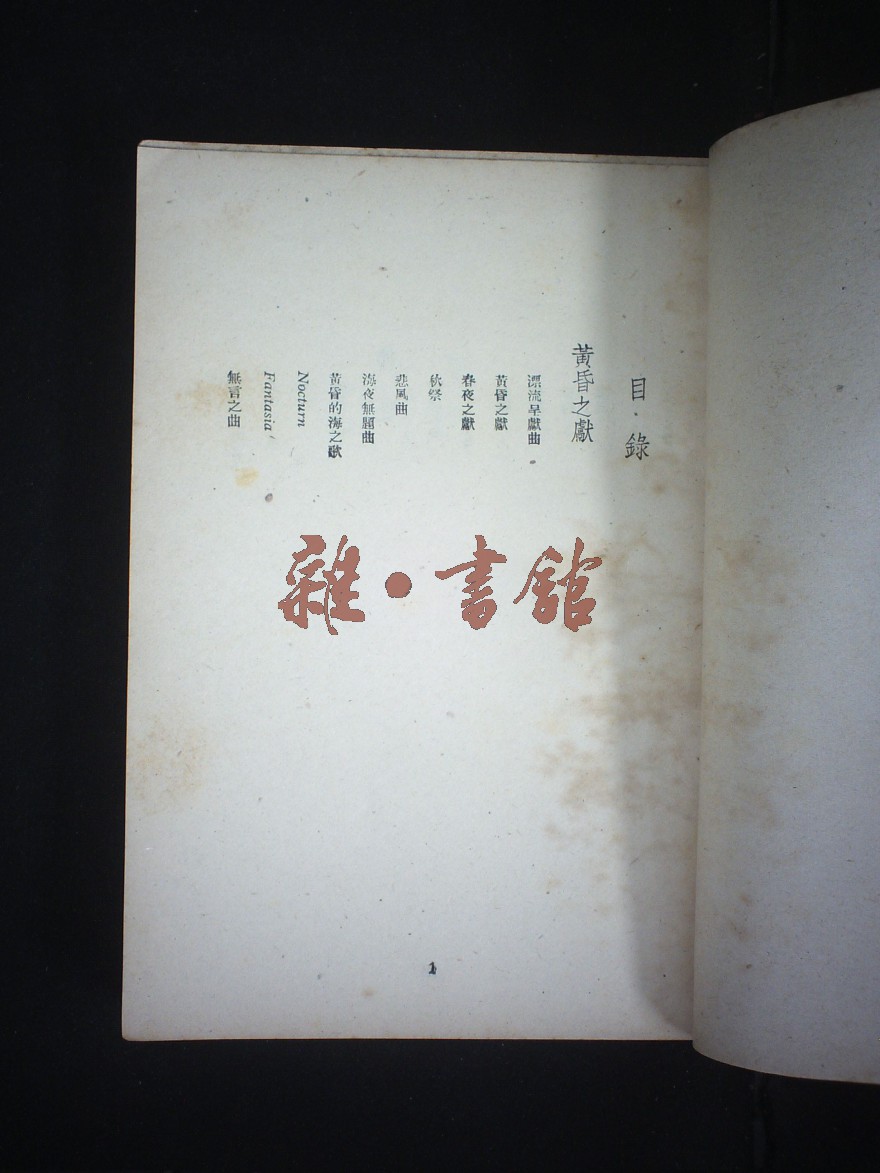 目．錄
黃昏之獻
漂流呈獻曲
黃昏之獻
春夜之獻
秋祭
悲風曲
海夜無題曲
黃昏的海之歌
Nocturn
Fantasia
無言之曲
雜•書館
1